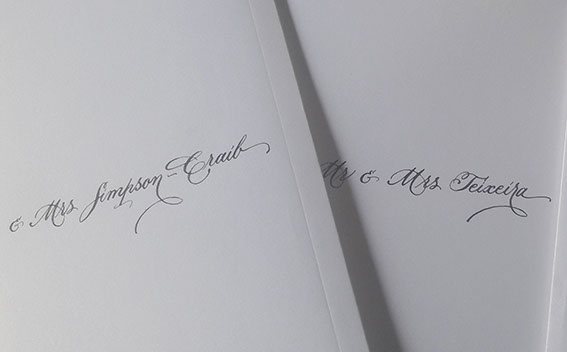 & Mrs Simpson-Craib
Mr & Mrs Teixeira